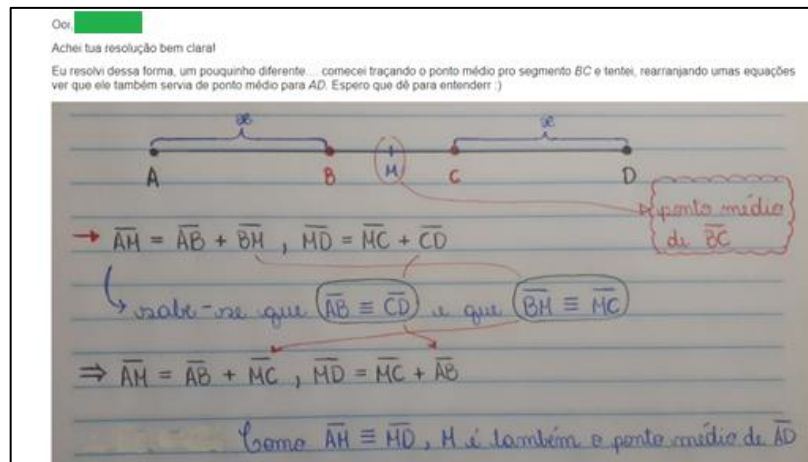 Oor,
Achei tua resolução bem clara!
Eu resolvi dessa forma, um pouquinho diferente.... comecei traçando o ponto médio pro segmento BC e tentei, rearranjando umas equações
ver que ele também servia de ponto médio para AD. Espero que dê para entenderr :)
x x
A B M C D
ponto médio
de B̅C̅
→ A̅M̅ = A̅B̅ + B̅M̅ , M̅D̅ = M̅C̅ + C̅D̅
sabe-se que A̅B̅ ≡ C̅D̅ e que B̅M̅ ≡ M̅C̅
⇒ A̅M̅ = A̅B̅ + M̅C̅ , M̅D̅ = M̅C̅ + A̅B̅
Como A̅M̅ ≡ M̅D̅, M é também o ponto médio de A̅D̅